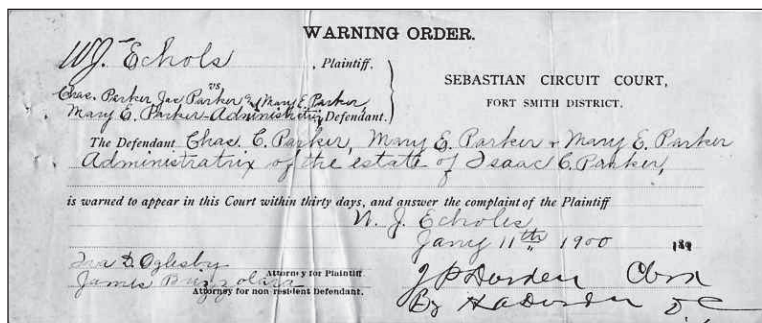 WARNING ORDER.
WJ. Echols , Plaintiff.
vs
Chas. Parker Jas Parker & Mary E. Parker,
Mary E. Parker-Administratrix Defendant.
SEBASTIAN CIRCUIT COURT,
FORT SMITH DISTRICT.
The Defendant Chas C. Parker, Mary E. Parker & Mary E. Parker
Administratrix of the estate of Isaac C. Parker,
is warned to appear in this Court within thirty days, and answer the complaint of the Plaintiff
W. J. Echols
Jany 11th 1900 189
Ira D. Oglesby
Attorney for Plaintiff.
James Brizzolara
Attorney for non-resident Defendant.
J P Dorden Clerk
By Dorden D C